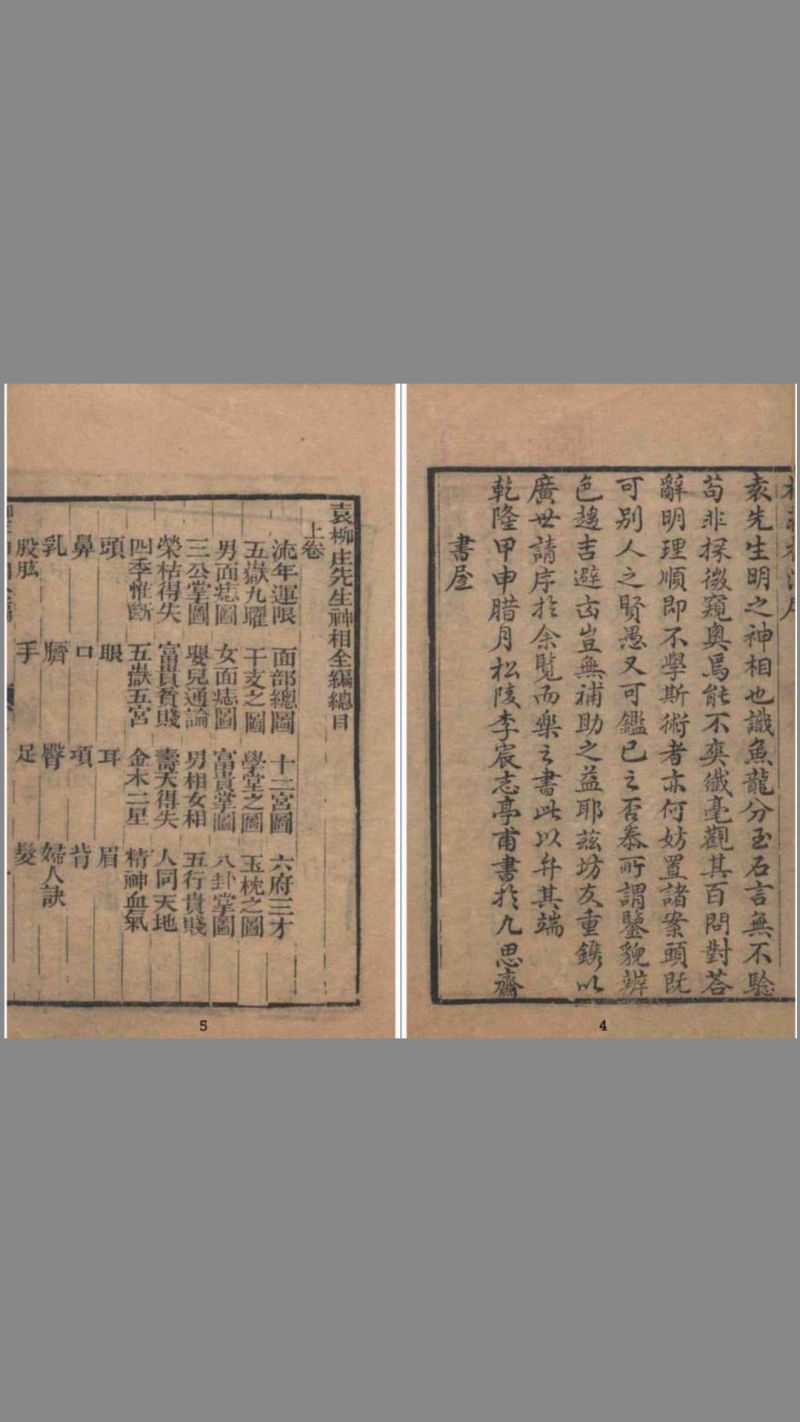 袁先生明之神相也識魚龍分玉石言無不驗
苟非探微窺奧焉能不爽纖毫觀其百問對荅
辭明理順即不學斯術者亦何妨置諸案頭既
可别人之賢愚又可鑑已之否泰所謂鑒貌辨
色趨吉避凶豈無補助之益耶兹坊友重鐫以
廣世請序於余覧而樂之書此以弁其端
乾隆甲申腊月松陵李宸志亭甫書於九思齋
書屋
4
袁柳庄先生神相全編總目
上卷
流年運限 面部總圖 十二宮圖 六府三才
五嶽九曜 干支之圖 學堂之圖 玉枕之圖
男面痣圖 女面痣圖 富貴掌圖 八卦掌圖
三公掌圖 嬰兒通論 男相女相 五行貴賤
榮枯得失 富貴貧賤 壽夭得失 人同天地
四季惟斷 五嶽五宮 金木二星 精神血氣
頭 眼 耳 眉
鼻 口 項 背
乳 臍 臀 婦人訣
股肱 手 足 髮
5